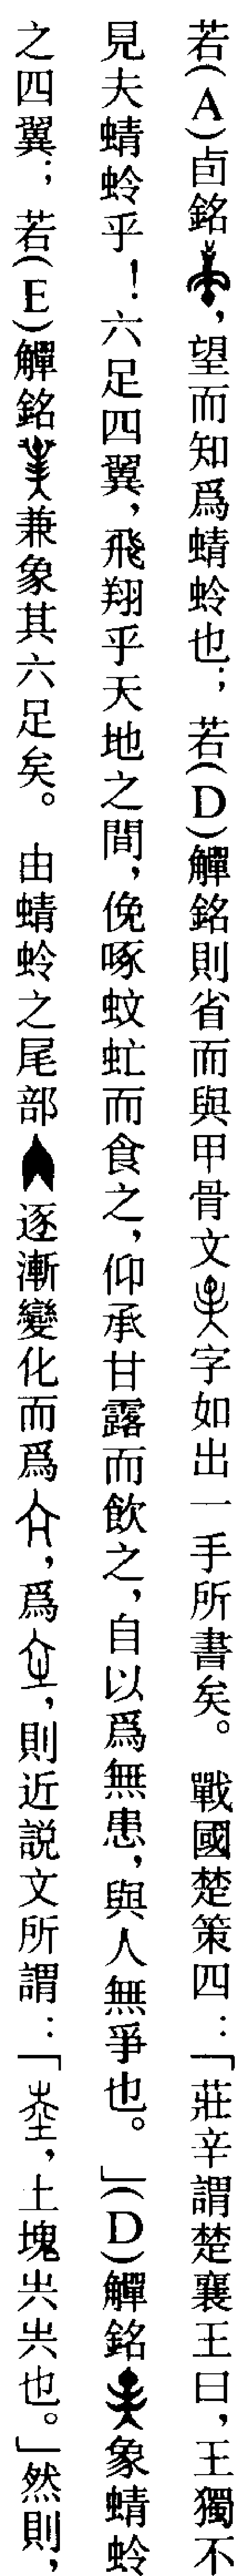 若(A)卣銘，望而知爲蜻蛉也；若(D)觶銘則省而與甲骨文字如出一手所書矣。戰國楚策四：「莊辛謂楚襄王曰，王獨不
見夫蜻蛉乎！六足四翼，飛翔乎天地之間，俛啄蚊虻而食之，仰承甘露而飲之，自以爲無患，與人無爭也。」(D)觶銘象蜻蛉
之四翼；若(E)觶銘兼象其六足矣。由蜻蛉之尾部逐漸變化而爲，爲，則近説文所謂：「坴，土塊圥圥也。」然則，